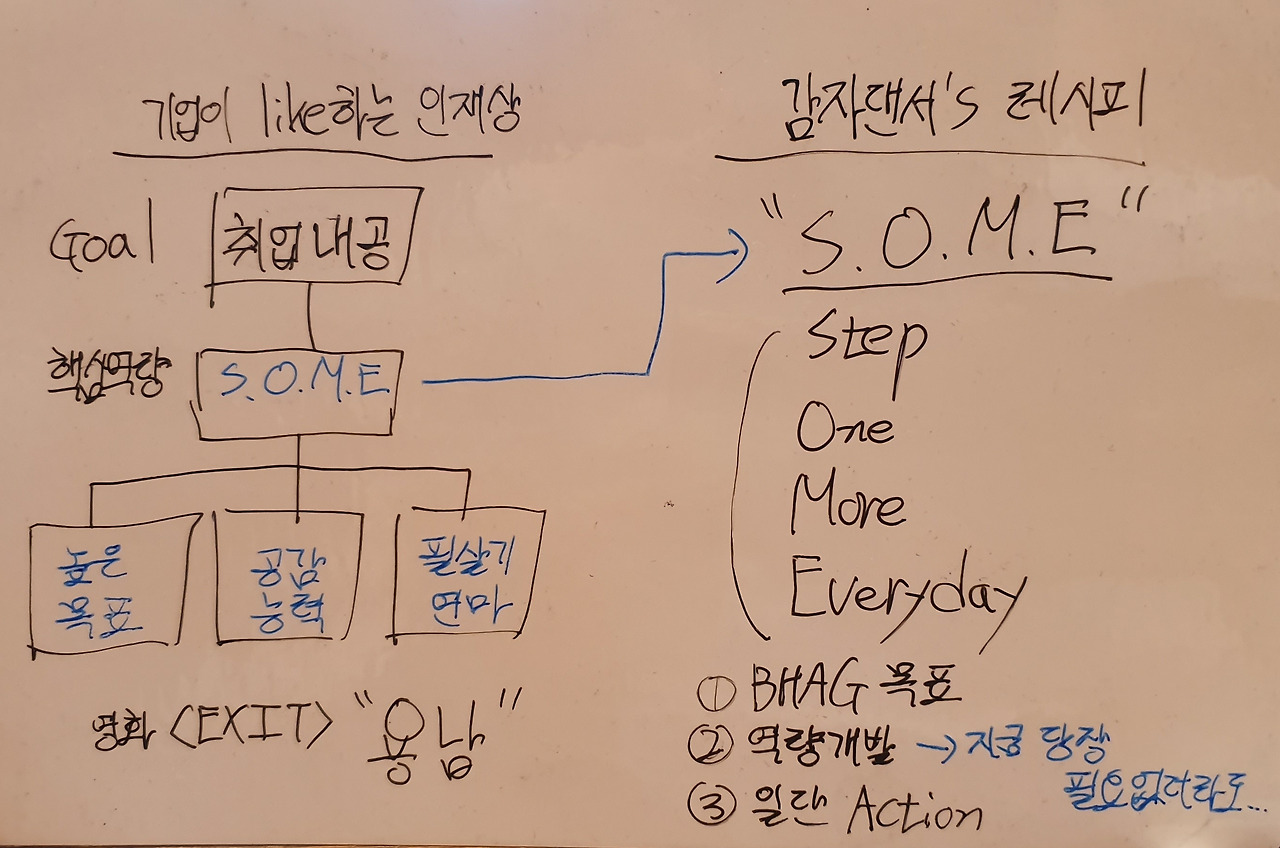 기업이 like하는 인재상
Goal
취업내공
핵심역량
S.O.M.E
높은
목표
공감
능력
필살기
연마
영화 <EXIT> "용남"
감자댄서's 레시피
"S.O.M.E"
Step
One
More
Everyday
① BHAG 목표
② 역량개발 → 지금 당장
필요없더라도...
③ 일단 Action